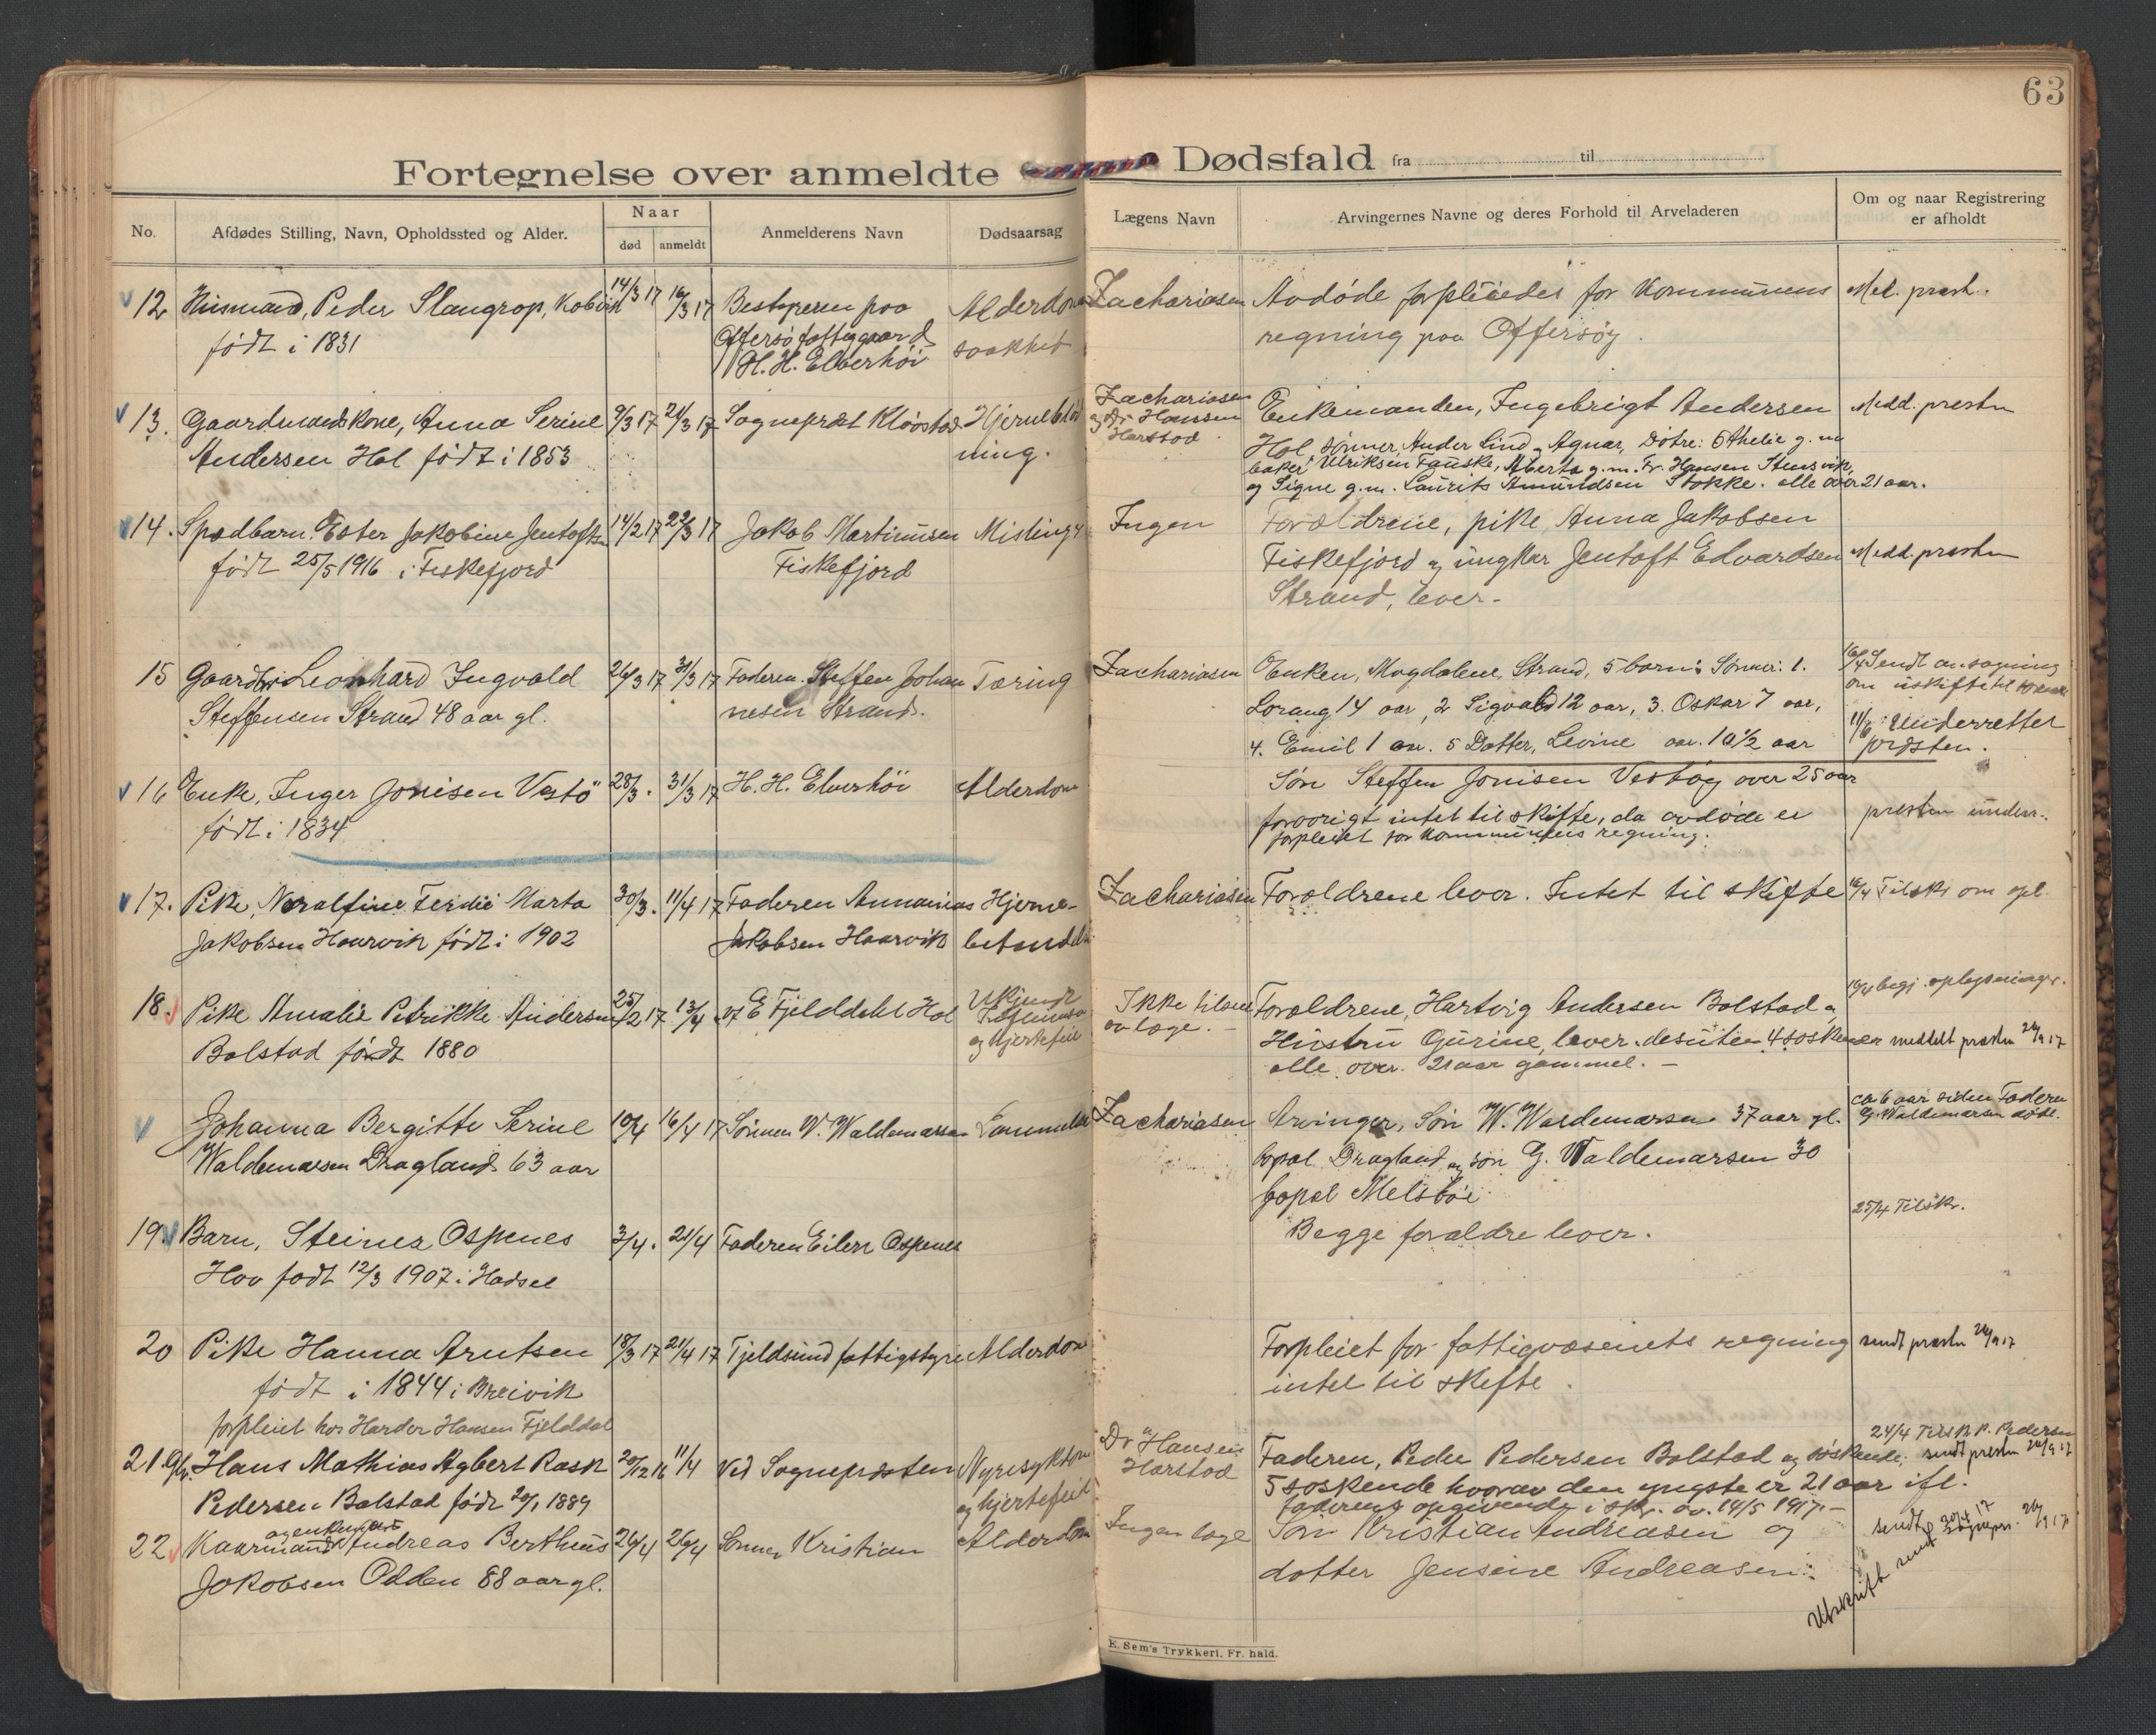 63
Fortegnelse over anmeldte Dødsfald fra til
No.
Afdødes Stilling, Navn, Opholdssted og Alder.
Naar
død
anmeldt
Anmelderens Navn
Dødsaarsag
Lægens Navn
Arvingernes Navne og deres Forhold til Arveladeren
Om og naar Registrering
er afholdt
12 Husmand, Peder Slangrop, 14/3 17 16/3 17 Bestyreren paa Alderdoms Zachariasen Avdøde forpleiedes for Kommunens Med. prest.
født i 1831 Offersø fattiggaard svakhet regning paa Offersøy.
H. H. Elverhöi
13. Gaardmandskone, Anna Serine 9/3 17 21/3 17 Sogneprest Kløvstad Hjerneblød Zachariasen Enkemanden, Ingebrigt Andersen Medd. presten
Andersen Hol født i 1853 ning. og Dr Hansen Hol, sønner, Ander Lind og Agnar, Døtre: Othelie g. m.
Harstad. baker Ulriksen Fauske, Alberta g. m. Fr. Hansen Stensvik,
og Signe g. m. Laurits Amundsen Stokke. alle over 21 aar.
14. Spædbarn Ester Jakobine Jentoftsen 14/2 17 22/3 17 Jakob Martinusen Mislinger Ingen Forældrene, pike Anna Jakobsen
født 25/5 1916 i Fiskefjord Fiskefjord Fiskefjord og ungkar Jentoft Edvardsen Medd. presten
Strand, lever.-
15 Gaardbr. Leonhard Ingvald 26/3 17 31/3 17 Faderen Steffen Johan Tæring Zachariasen Enken, Magdalene Strand, 5 barn: Sønner: 1. 16/4 Sendt ansøgning
Steffensen Strand 48 aar gl. nesen Strand. Lorang 14 aar, 2 Sigvald 12 aar, 3. Oskar 7 aar, om uskifte til
4. Emil 1 aar. 5 Datter, Levine 10½ aar 11/6 Underrettet presten.
16 Enke, Inger Jonisen Vestö 28/3. 31/3 17 H. H. Elverhöi Alderdom Søn Steffen Jonisen Vestbøg over 25 aar
født i 1834 forøvrigt intet til skifte, da avdøde er presten underr..
forpleiet for kommunens regning.
17. Pike, Noralfine Marta 30/3. 11/4 17 Faderen Annanias Hjerne- Zachariasen Forældrene lever. Intet til skifte 16/4 Tilskr om opl.
Jakobsen Haarvik født i 1902 Jakobsen Haarvik
18. Pike Amalie Petrikke Andersen 25/2 17 13/4 E Fjelddahl Hol Ukjendt Ikke tilseet Forældrene, Hartvig Andersen Bolstad og begj. oplysninger.
Bolstad født 1880 og hjertefeil av læge.- Hustru Gurine, lever. desuten 4 søskener meddelt presten 26/9 17
alle over 21 aar gammel.-
Johanna Bergitte Serine 10/4 16/4 17 Sönnen W. Waldemarsen Zachariasen Arvinger, Søn W. Waldemarsen 37 aar gl. ca 6 aar siden Faderen
Waldemarsen Dragland 63 aar bopæl Dragland og søn G. Waldemarsen 30 G. Waldemarsen døde.
bopæl Melsböi
19 Barn, Steinar Ospenes 3/4. 21/4 Faderen Eilert Ospenes Begge forældre lever. 25/4 Tilskr.
Hov født 12/3 1907 i Hadsel
20 Pike Hanna Arntsen 18/3 17 21/4 17 Tjeldsund fattigstyre Alderdom Forpleiet for fattigvæsenets regning sendt presten 26/9 17
født i 1844 i Breivik intet til skifte.
forpleiet hos Harder Hansen Fjelddal
21. Hans Mathias Agbert Rask 20/12 16 11/4 Ved Sognepresten Nyresykdom Dr Hansen Faderen, Peder Pedersen Bolstad og søskende; 24/4 Tilskr P. Pedersen
Pedersen Bolstad født 20/1 1889 og hjertefeil Harstad 5 søskende hvorav den yngste er 21 aar ifl. sendt presten 26/9 17
faderens opgivende i skr. av. 14/5 1917.-
22 Kaarmand og enkemand Andreas Bertheus 26/4 26/4 Sønnen Kristian Alderdom Ingen læge Søn Kristian Andreasen og sendt
Jakobsen Odden 88 aar gl. datter Jensine Andreasen. Utskrift sendt
E. Sem's Trykkeri, Fr. hald.